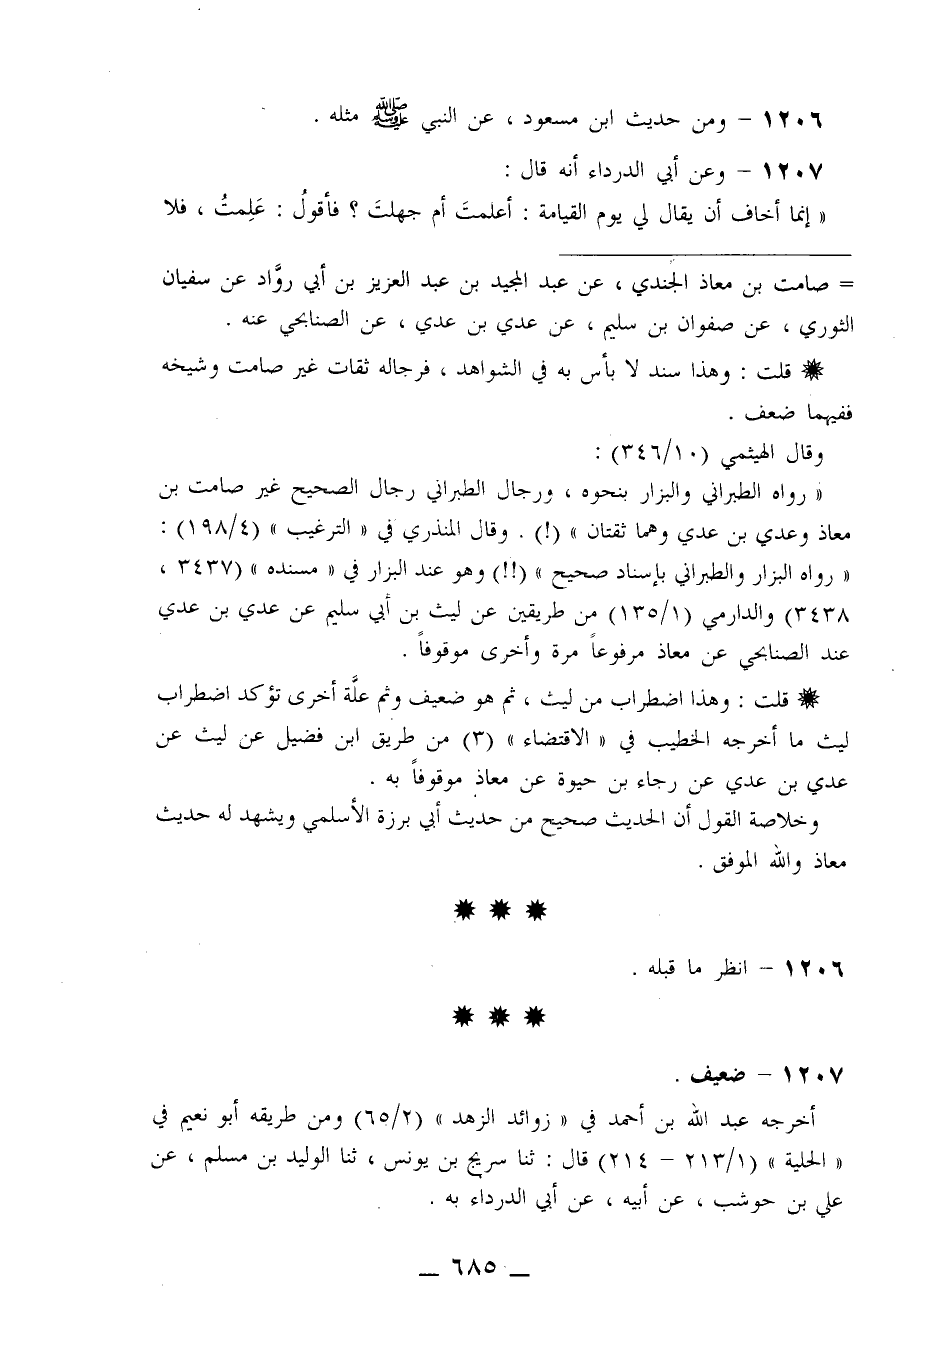 ١٢٠٦ – ومن حديث ابن مسعود ، عن النبي ﷺ مثله .
١٢٠٧ – وعن أبي الدرداء أنه قال :
« إنما أخاف أن يقال لي يوم القيامة : أعلمتَ أم جهلتَ ؟ فأقولُ : عَلِمتُ ، فلا
= صامت بن معاذ الجندي ، عن عبد المجيد بن عبد العزيز بن أبي روَّاد عن سفيان
الثوري ، عن صفوان بن سليم ، عن عدي بن عدي ، عن الصنابحي عنه .
✹ قلت : وهذا سند لا بأس به في الشواهد ، فرجاله ثقات غير صامت وشيخه
ففيهما ضعف .
وقال الهيثمي (٣٤٦/١٠) :
« رواه الطبراني والبزار بنحوه ، ورجال الطبراني رجال الصحيح غير صامت بن
معاذ وعدي بن عدي وهما ثقتان » (!) . وقال المنذري في « الترغيب » (١٩٨/٤) :
« رواه البزار والطبراني بإسناد صحيح » (!!) وهو عند البزار في « مسنده » (٣٤٣٧ ،
٣٤٣٨) والدارمي (١٣٥/١) من طريقين عن ليث بن أبي سليم عن عدي بن عدي
عند الصنابحي عن معاذ مرفوعاً مرة وأخرى موقوفاً .
✹ قلت : وهذا اضطراب من ليث ، ثم هو ضعيف وثم علَّة أخرى تؤكد اضطراب
ليث ما أخرجه الخطيب في « الاقتضاء » (٣) من طريق ابن فضيل عن ليث عن
عدي بن عدي عن رجاء بن حيوة عن معاذ موقوفاً به .
وخلاصة القول أن الحديث صحيح من حديث أبي برزة الأسلمي ويشهد له حديث
معاذ والله الموفق .
✹ ✹ ✹
١٢٠٦ – انظر ما قبله .
✹ ✹ ✹
١٢٠٧ – ضعيف .
أخرجه عبد الله بن أحمد في « زوائد الزهد » (٦٥/٢) ومن طريقه أبو نعيم في
« الحلية » (٢١٣/١ – ٢١٤) قال : ثنا سريج بن يونس ، ثنا الوليد بن مسلم ، عن
علي بن حوشب ، عن أبيه ، عن أبي الدرداء به .
_ ٦٨٥ _